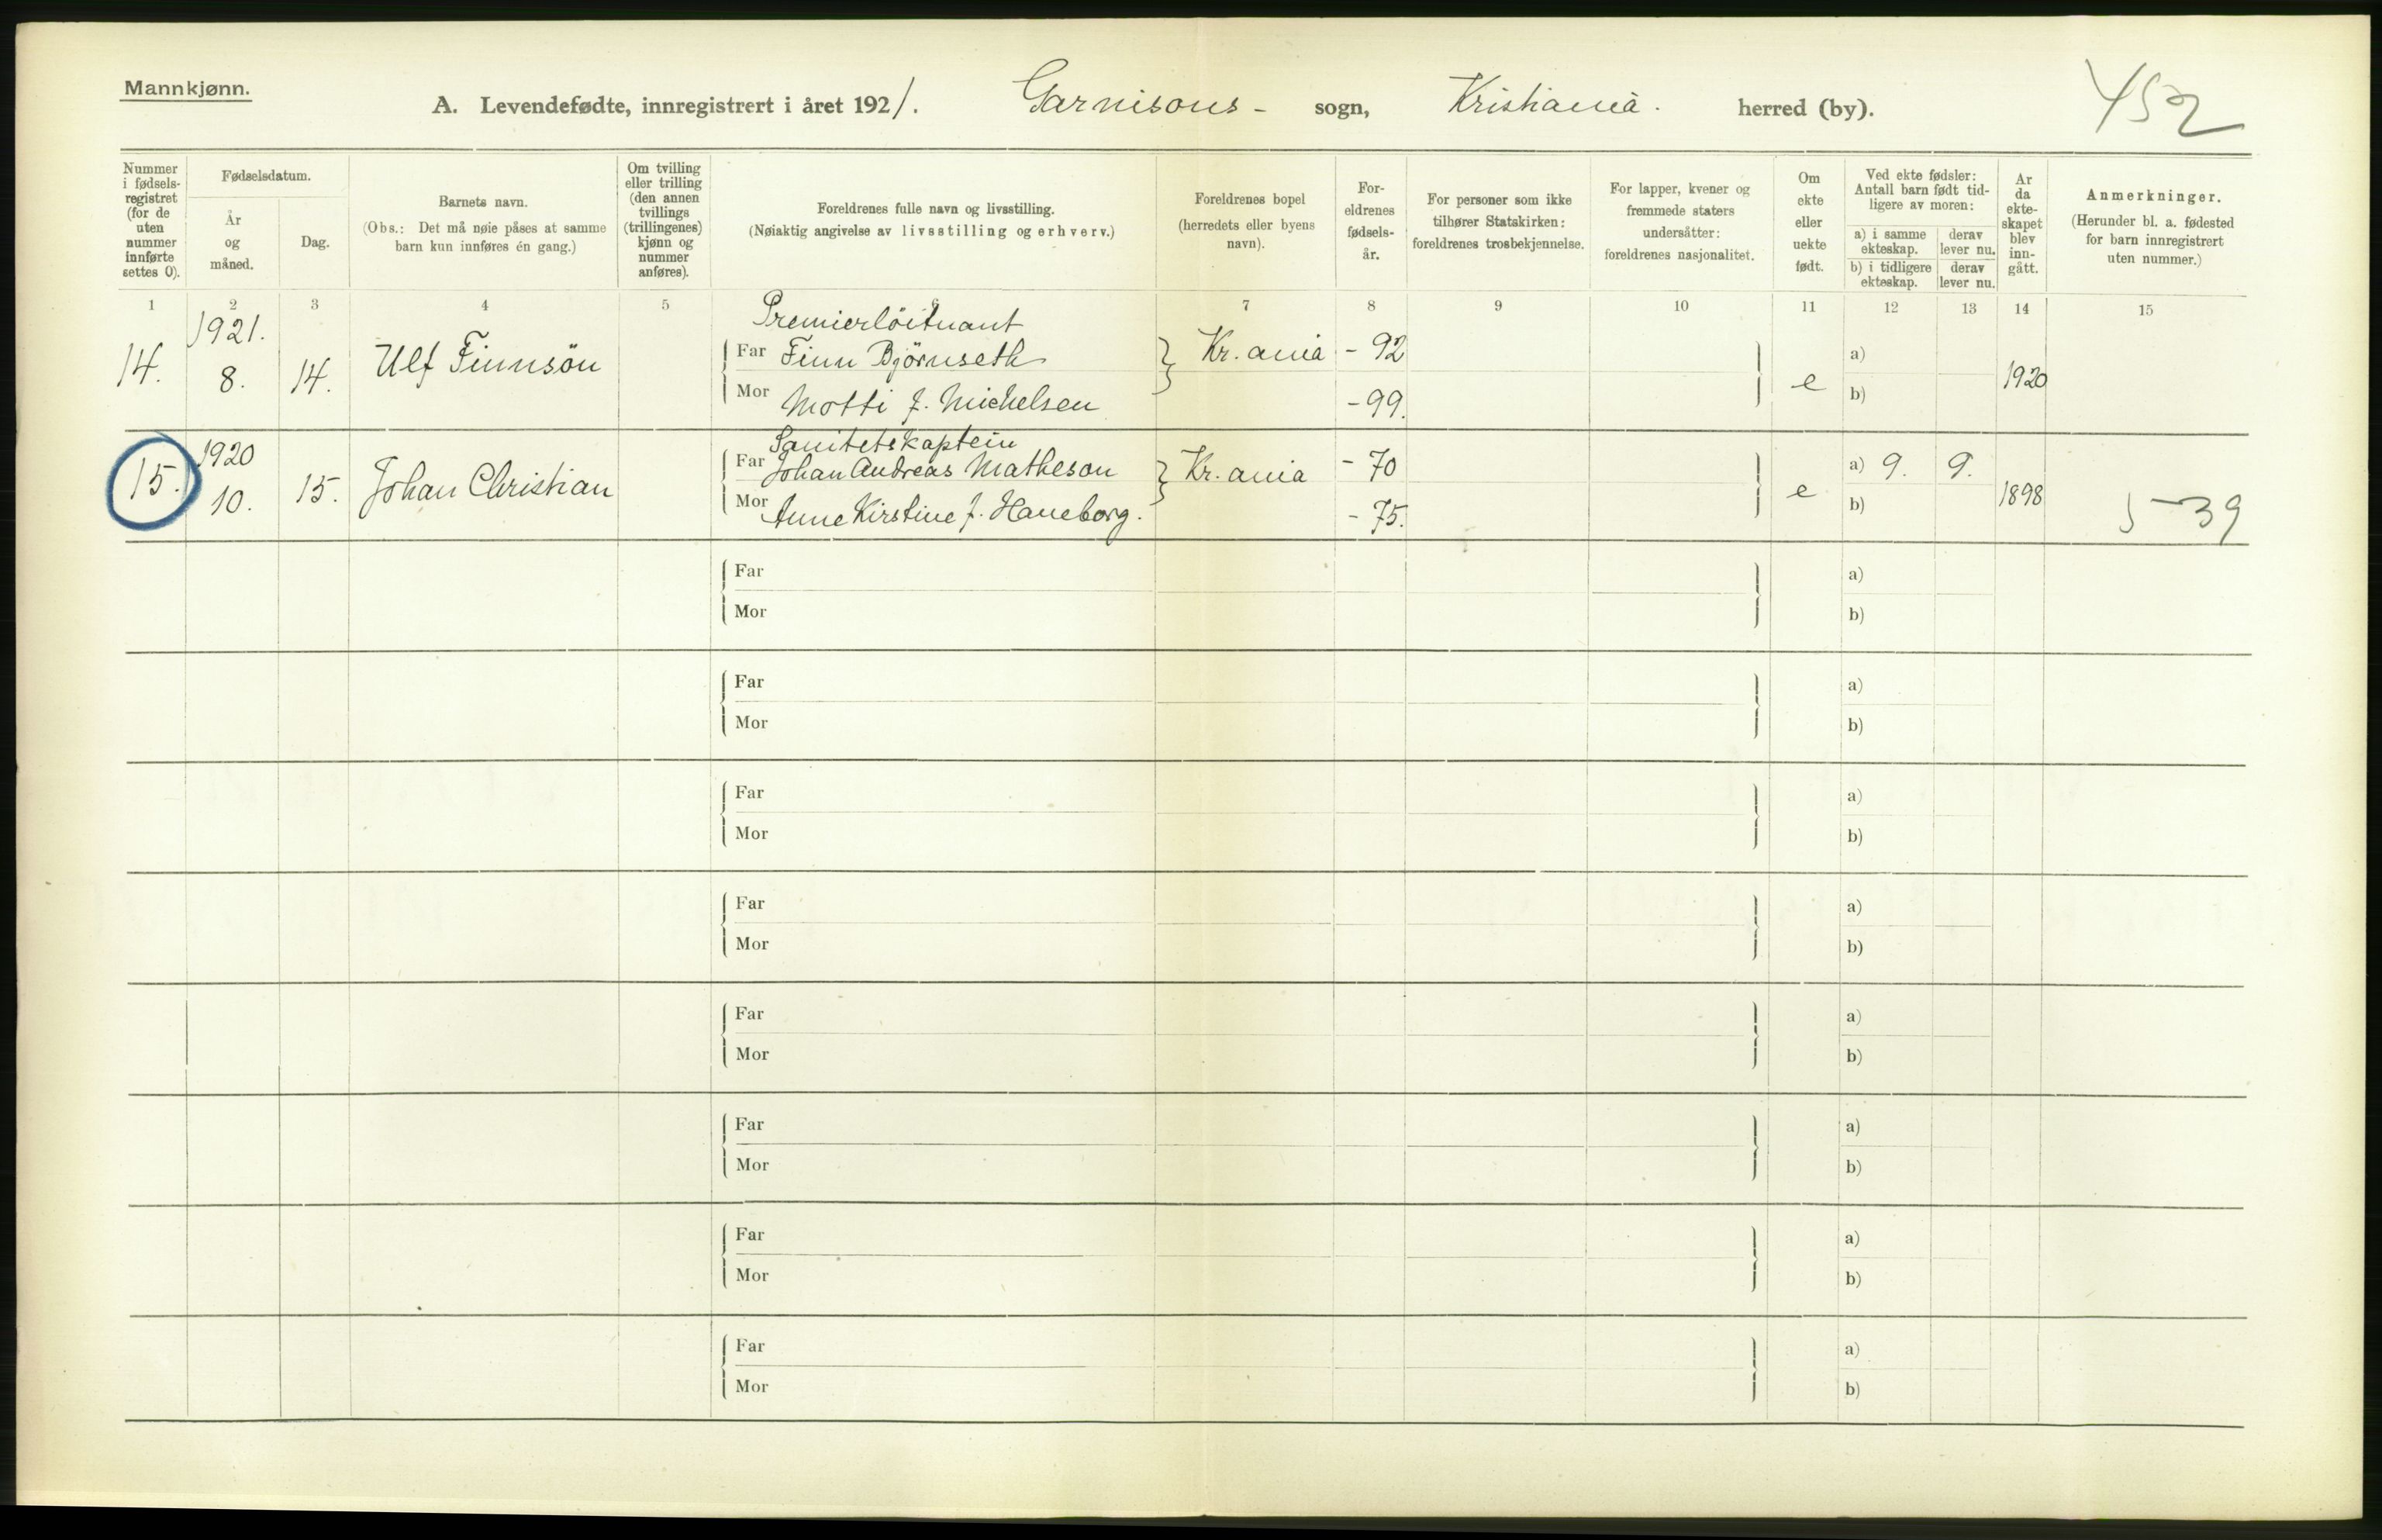 Mannkjønn.
A. Levendefødte, innregistrert i året 1921. Garnisons- sogn, Kristiania. herred (by). 452
Nummer i fødsels-registret (for de uten nummer innførte settes 0).
Fødselsdatum.
År og måned.
Dag.
Barnets navn.
(Obs.: Det må nøie påses at samme barn kun innføres én gang.)
Om tvilling eller trilling (den annen tvillings (trillingenes) kjønn og nummer anføres).
Foreldrenes fulle navn og livsstilling.
(Nøiaktig angivelse av livsstilling og erhverv.)
Foreldrenes bopel (herredets eller byens navn).
For-eldrenes fødsels-år.
For personer som ikke tilhører Statskirken: foreldrenes trosbekjennelse.
For lapper, kvener og fremmede staters undersåtter: foreldrenes nasjonalitet.
Om ekte eller uekte født.
Ved ekte fødsler: Antall barn født tid-ligere av moren:
a) i samme ekteskap. derav lever nu.
b) i tidligere ekteskap. derav lever nu.
År da ekte-skapet blev inn-gått.
Anmerkninger.
(Herunder bl. a. fødested for barn innregistrert uten nummer.)
1 2 3 4 5 6 7 8 9 10 11 12 13 14 15
14. 1921. 8. 14. Ulf Finnsön
Premierlöitnant
Far Finn Björnseth Kr.ania - 92 a)
Mor Motti f. Michelsen - 99. e b) 1920
15. 1920 10. 15. Johan Christian
Sanitetskaptein
Far Johan Andreas Matheson Kr.ania - 70 a) 9. 9.
Mor Anne Kirstine f. Haneborg. - 75. e b) 1898 5-39
Far a)
Mor b)
Far a)
Mor b)
Far a)
Mor b)
Far a)
Mor b)
Far a)
Mor b)
Far a)
Mor b)
Far a)
Mor b)
Far a)
Mor b)